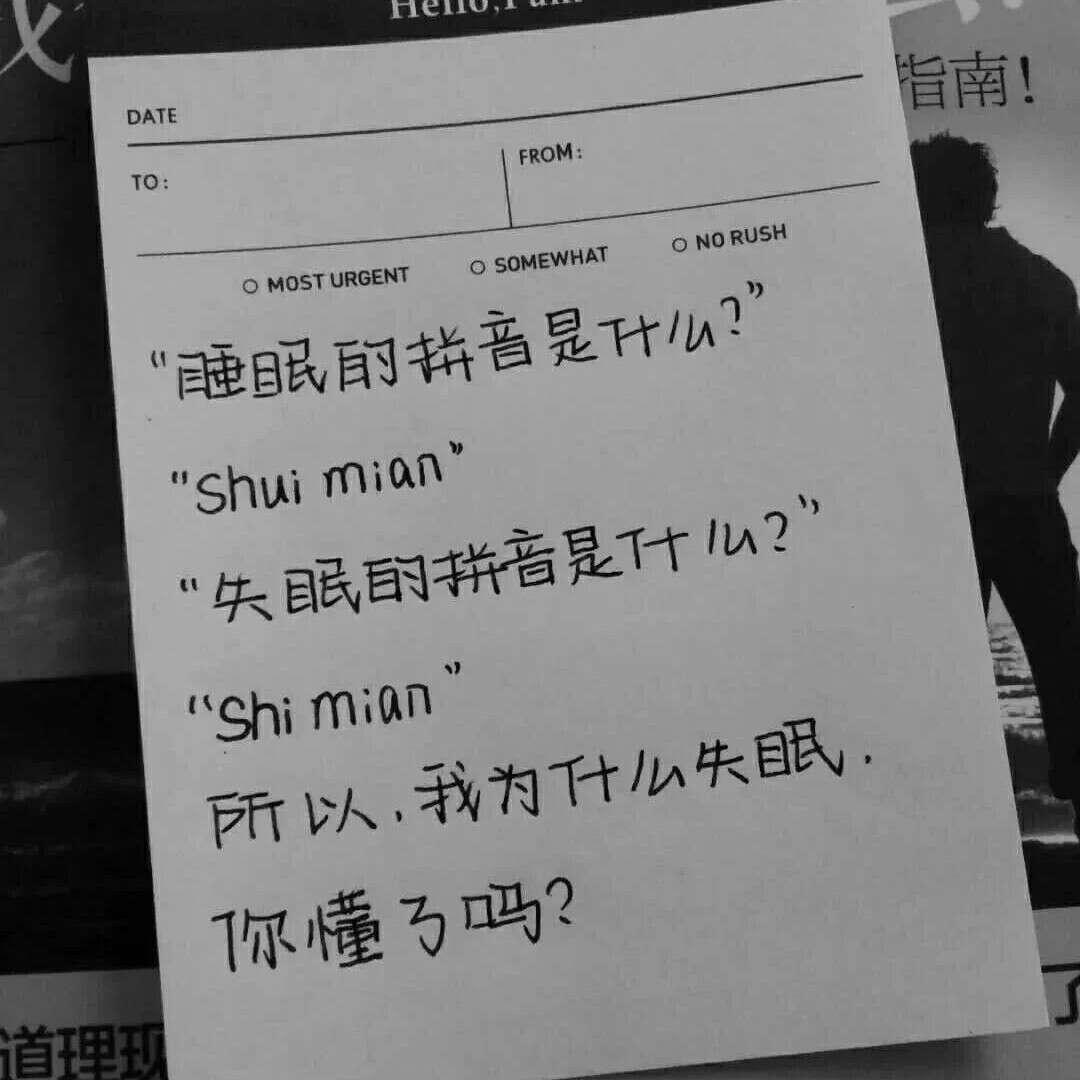 Hello,
指南!
DATE
TO:
FROM:
MOST URGENT
SOMEWHAT
NO RUSH
“睡眠的拼音是什么?”
“Shui mian”
“失眠的拼音是什么?”
“Shi mian”
所以,我为什么失眠.
你懂了吗?
道理现
了